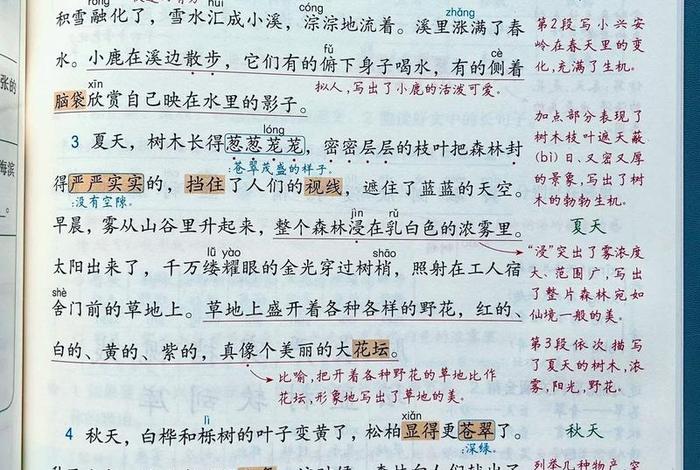 积雪融化了，雪水汇成小溪，淙淙地流着。溪里涨满了春
水。小鹿在溪边散步，它们有的俯下身子喝水，有的侧着
拟人，写出了小鹿的活泼可爱。
脑袋欣赏自己映在水里的影子。
3 夏天，树木长得葱葱茏茏，密密层层的枝叶把森林封
:苍翠茂盛的样子
得严严实实的，挡住了人们的视线，遮住了蓝蓝的天空。
:没有空隙。
早晨，雾从山谷里升起来，整个森林浸在乳白色的浓雾里。
太阳出来了，千万缕耀眼的金光穿过树梢，照射在工人宿
舍门前的草地上。草地上盛开着各种各样的野花，红的、
白的、黄的、紫的，真像个美丽的大花坛。
比喻，把开着各种野花的草地比作
花坛，形象地写出了草地的美。
4 秋天，白桦和栎树的叶子变黄了，松柏显得更苍翠了。
:深绿。
第2段写小兴安
岭在春天里的变
化，充满了生机。
加点部分表现了
树木枝叶遮天蔽
(bì)日、又密又厚
的景象，写出了树
木的勃勃生机。
夏天
“浸”突出了雾浓度
大、范围广，写出
了整片森林宛如
仙境一般的美。
第3段依次描写
了夏天的树木，浓
雾，阳光，野花。
秋天
róng
huì
cóng
zhǎng
fǔ
xīn
lóng
jìn
rǔ
lǚ yào
shāo
shè
lì
xiǎn
张的
海滨